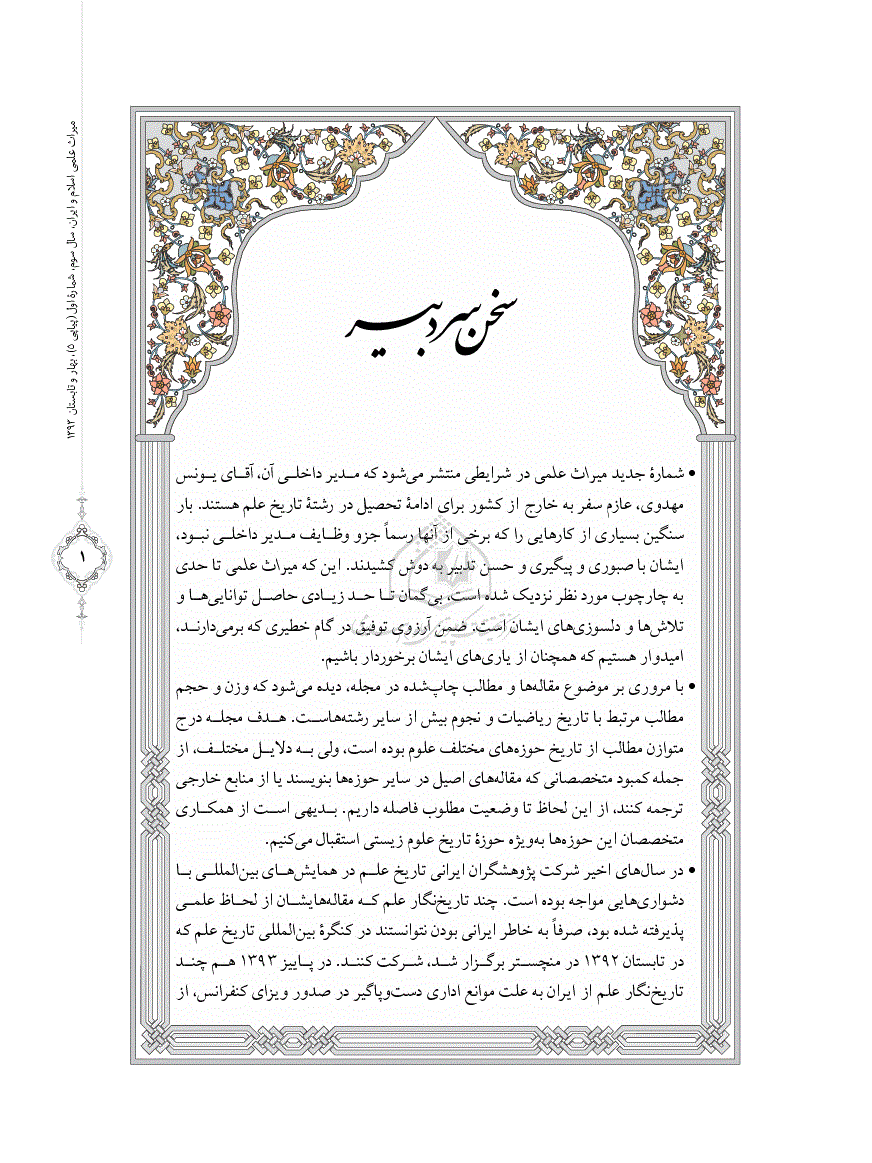 میراث علمی اسلام و ایران، سال سوم، شمارهٔ اول (پیاپی ۵)، بهار و تابستان ۱۳۹۳
۱
سخن سردبیر
• شمارهٔ جدید میراث علمی در شرایطی منتشر می‌شود که مـدیر داخلـی آن، آقـای یـونس
مهدوی، عازم سفر به خارج از کشور برای ادامهٔ تحصیل در رشتهٔ تاریخ علم هستند. بار
سنگین بسیاری از کارهایی را که برخی از آنها رسماً جزو وظـایف مـدیر داخلـی نبـود،
ایشان با صبوری و پیگیری و حسن تدبیر به دوش کشیدند. این که میراث علمی تا حدی
به چارچوب مورد نظر نزدیک شده است، بی‌گمان تـا حـد زیـادی حاصـل توانایی‌هـا و
تلاش‌ها و دلسوزی‌های ایشان است. ضمن آرزوی توفیق در گام خطیری که برمی‌دارنـد،
امیدوار هستیم که همچنان از یاری‌های ایشان برخوردار باشیم.
• با مروری بر موضوع مقاله‌ها و مطالب چاپ‌شده در مجله، دیده می‌شود که وزن و حجم
مطالب مرتبط با تاریخ ریاضیات و نجوم بیش از سایر رشته‌هاسـت. هـدف مجلـه درج
متوازن مطالب از تاریخ حوزه‌های مختلف علوم بوده است، ولی بـه دلایـل مختلـف، از
جمله کمبود متخصصانی که مقاله‌های اصیل در سایر حوزه‌ها بنویسند یا از منابع خارجی
ترجمه کنند، از این لحاظ تا وضعیت مطلوب فاصله داریم. بـدیهی اسـت از همکـاری
متخصصان این حوزه‌ها به‌ویژه حوزهٔ تاریخ علوم زیستی استقبال می‌کنیم.
• در سال‌های اخیر شرکت پژوهشگران ایرانی تاریخ علـم در همایش‌هـای بین‌المللـی بـا
دشواری‌هایی مواجه بوده است. چند تاریخ‌نگار علم کـه مقاله‌هایشـان از لحـاظ علمـی
پذیرفته شده بود، صرفاً به خاطر ایرانی بودن نتوانستند در کنگرهٔ بین‌المللی تاریخ علم که
در تابستان ۱۳۹۲ در منچسـتر برگـزار شـد، شـرکت کننـد. در پـاییز ۱۳۹۳ هـم چنـد
تاریخ‌نگار علم از ایران به علت موانع اداری دست‌وپاگیر در صدور ویزای کنفرانس، از